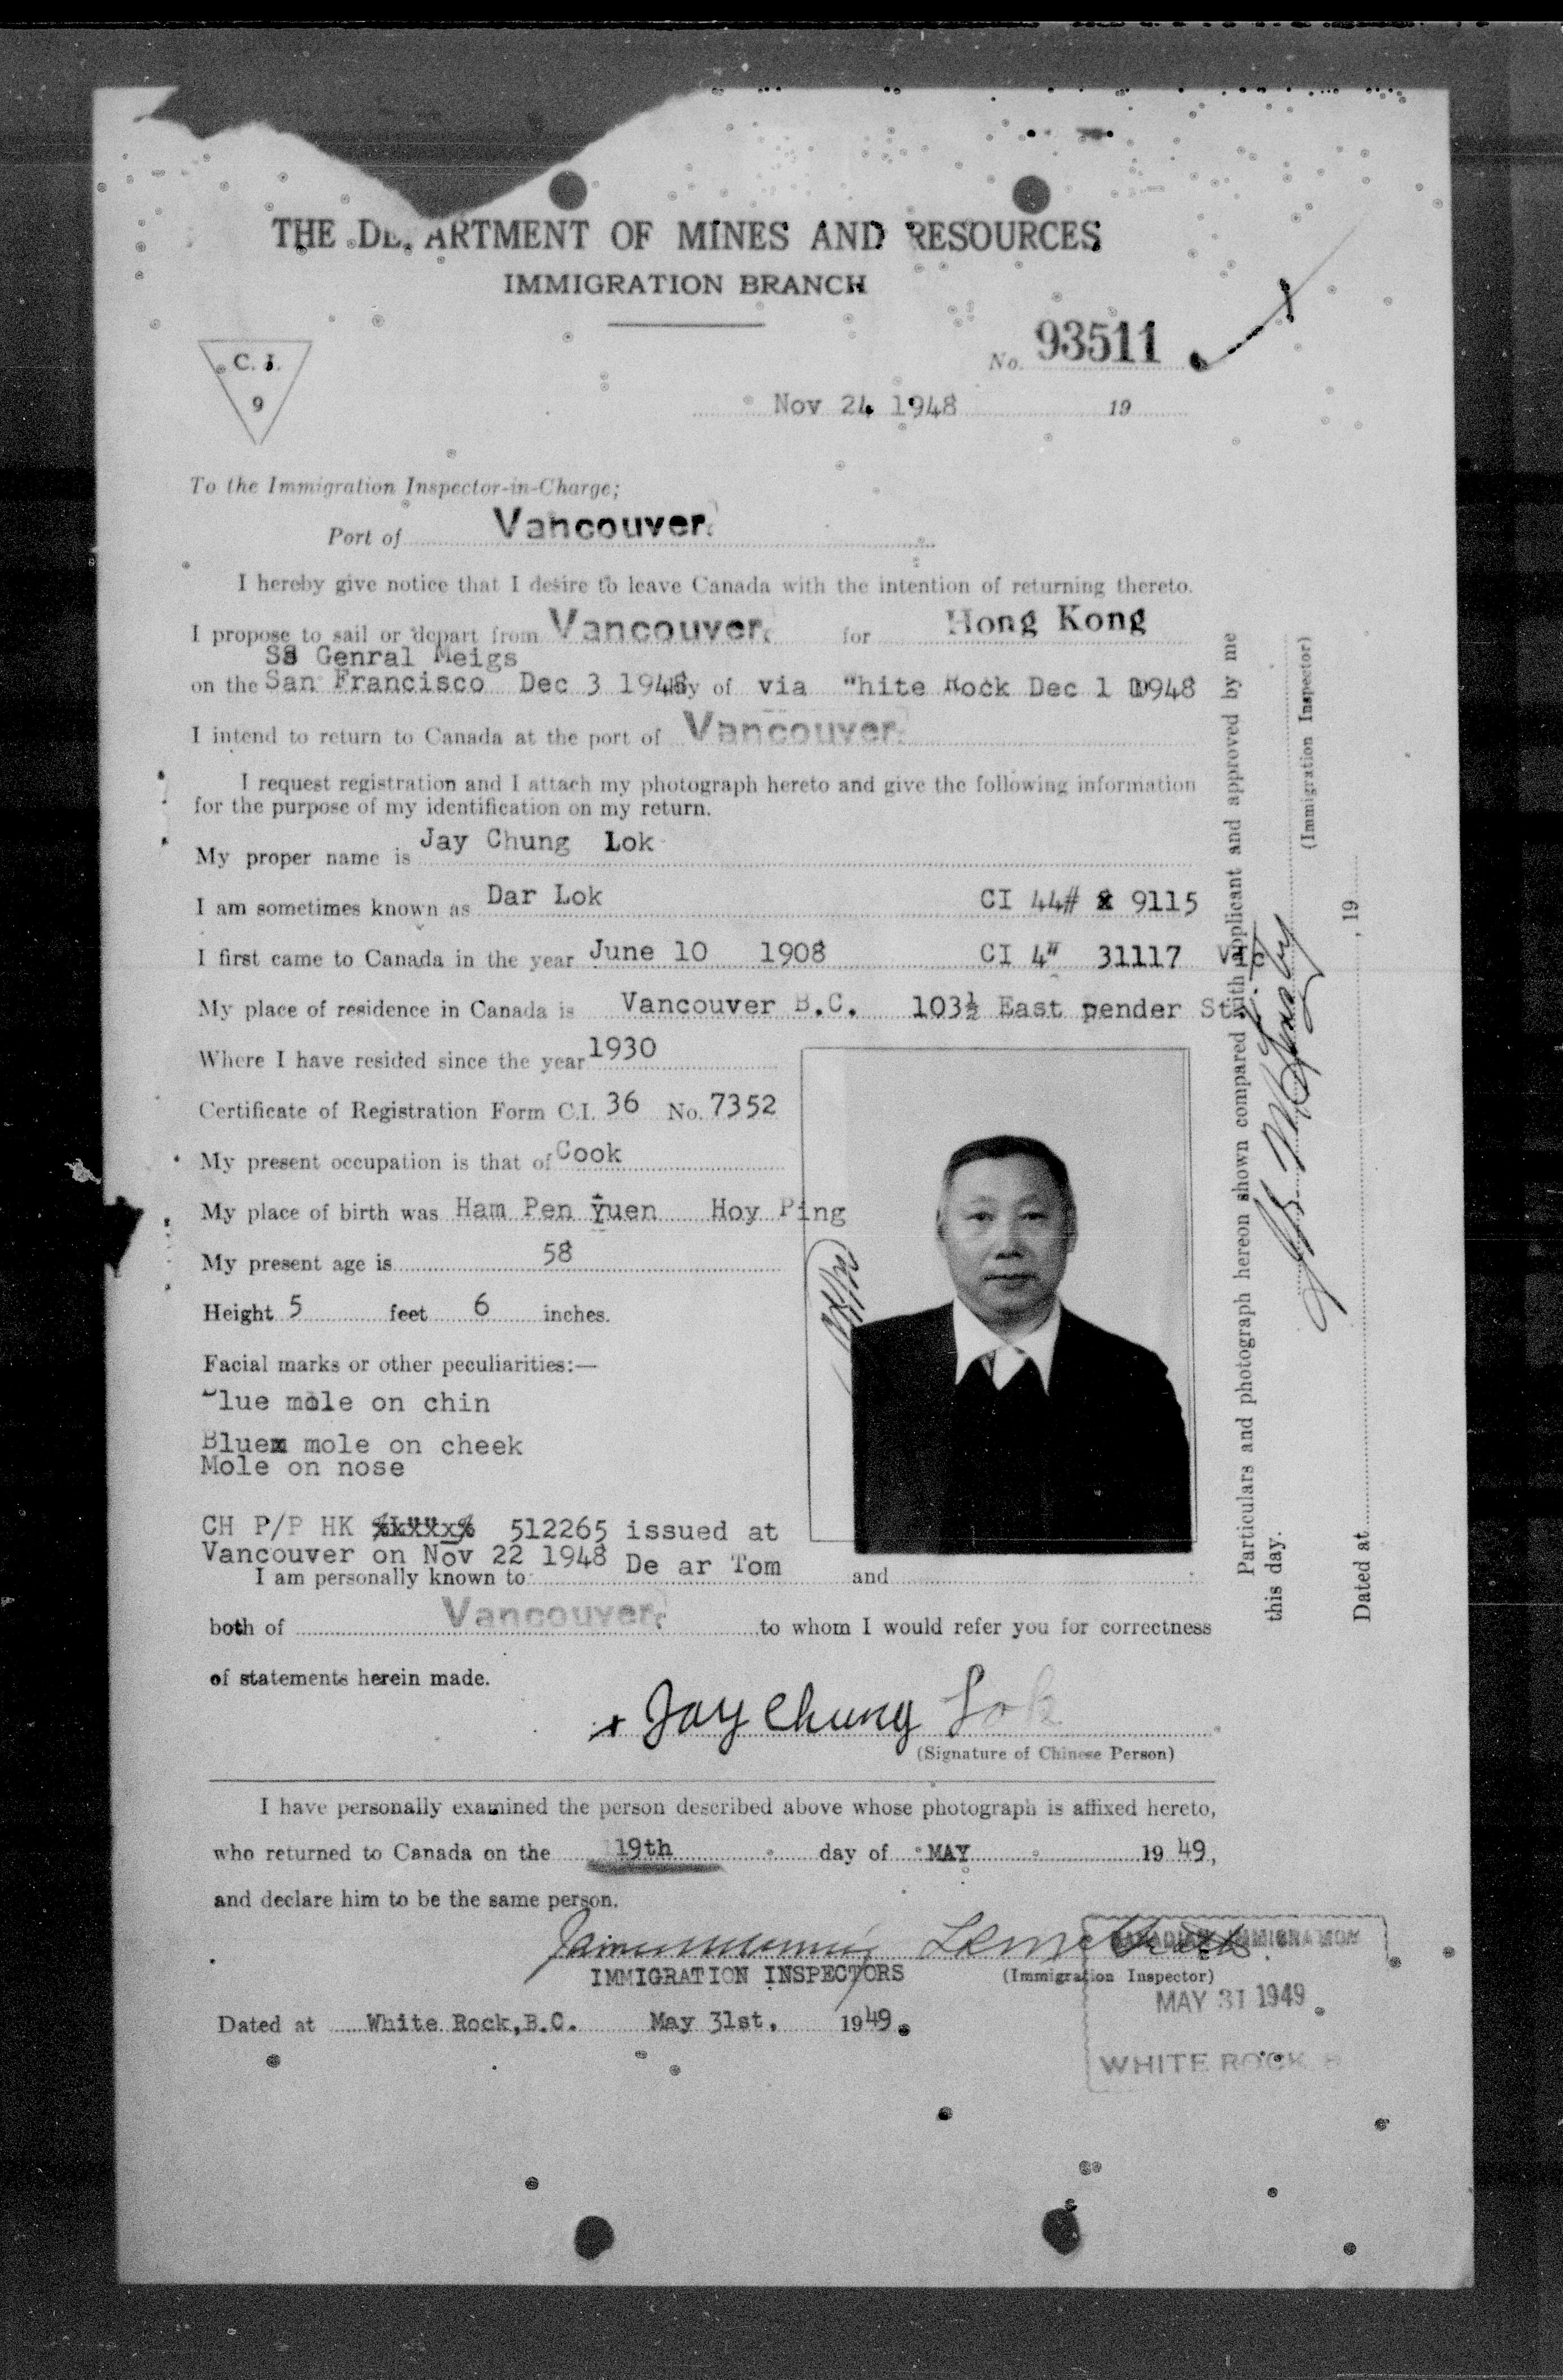 THE DEPARTMENT OF MINES AND RESOURCES
IMMIGRATION BRANCH
C. I.
9
No. 93511
Nov 24 1948 19
To the Immigration Inspector-in-Charge;
Port of Vancouver.
I hereby give notice that I desire to leave Canada with the intention of returning thereto.
I propose to sail or depart from Vancouver. for Hong Kong
SS Genral Meigs
on the San Francisco Dec 3 1948 day of via "hite Rock Dec 1 1948
I intend to return to Canada at the port of Vancouver.
I request registration and I attach my photograph hereto and give the following information
for the purpose of my identification on my return.
My proper name is Jay Chung Lok
I am sometimes known as Dar Lok CI 44# 9115
I first came to Canada in the year June 10 1908 CI 4" 31117 Vic
My place of residence in Canada is Vancouver B.C. 103½ East pender St.
Where I have resided since the year 1930
Certificate of Registration Form C.I. 36 No. 7352
My present occupation is that of Cook
My place of birth was Ham Pen Yuen Hoy Ping
My present age is 58
Height 5 feet 6 inches.
Facial marks or other peculiarities:—
Blue mole on chin
Blue mole on cheek
Mole on nose
CH P/P HK 512265 issued at
Vancouver on Nov 22 1948
I am personally known to De ar Tom and
both of Vancouver. to whom I would refer you for correctness
of statements herein made.
x Jay Chung Lok
(Signature of Chinese Person)
I have personally examined the person described above whose photograph is affixed hereto,
who returned to Canada on the 19th day of MAY 19 49,
and declare him to be the same person.
IMMIGRATION INSPECTORS (Immigration Inspector)
Dated at White Rock, B.C. May 31st. 1949.
CANADIAN IMMIGRATION
MAY 31 1949
WHITE ROCK B
Particulars and photograph hereon shown compared with applicant and approved by me
this day.
(Immigration Inspector)
Dated at , 19